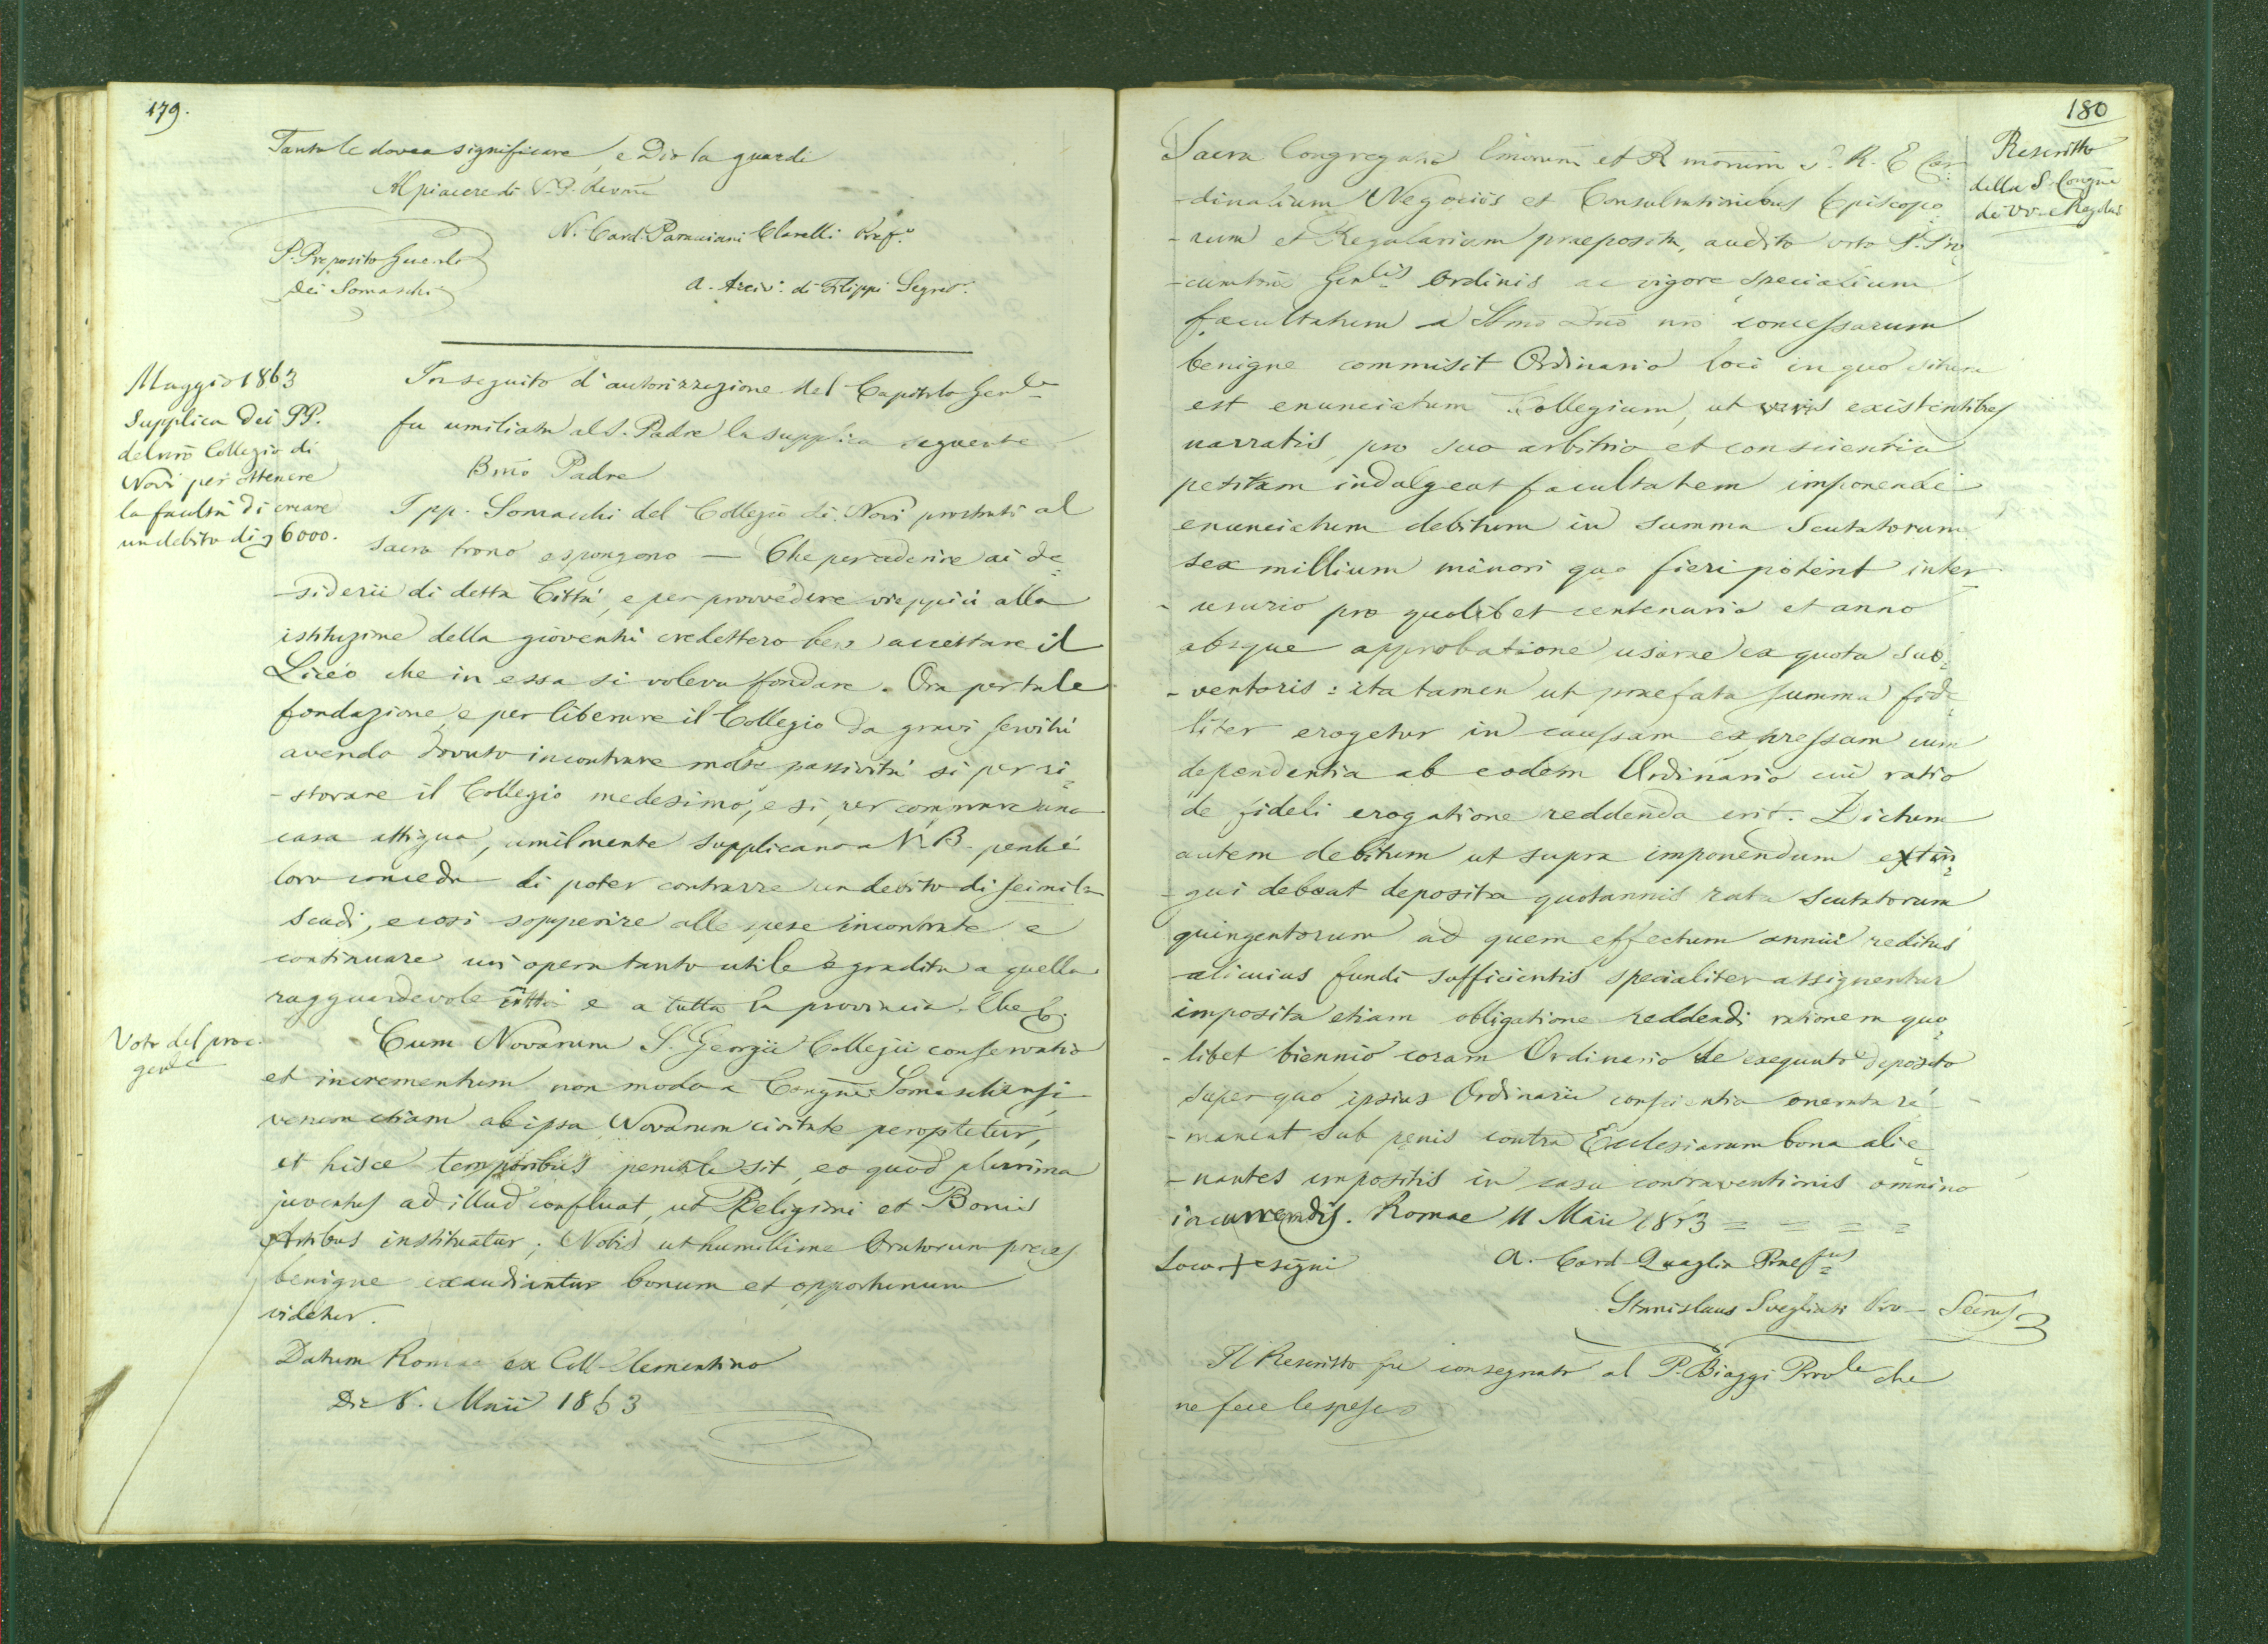 179.
Tanto le dovea significare, e Dio la guardi
Al piacere di V. P. Revma
N. Card. Paracciani Clarelli Pref.o
P. Preposito Guerale
dei Somaschi
A. Arciv.o di Filippi Segret.o
Maggio 1863
Supplica dei PP.
del nro Collegio di
Novi per ottenere
la facoltà di creare
un debito di 6000.
In seguito d'autorizzazione del Capitolo Genle
fu umiliata al S. Padre la supplica seguente
Bmo Padre
I pp. Somaschi del Collegio di Novi prostrati al
sacro trono espongono — Che per aderire ai de=
-siderii di detta Città, e per provvedere vieppiù alla
istituzione della gioventù credettero bene accettare il
Liceo che in essa si voleva fondare. Ora per tale
fondazione, e per liberare il Collegio da gravi servitù
avendo dovuto incontrare molte passività sì per ri=
-storare il Collegio medesimo, e sì per comprare una
casa attigua, umilmente supplicano a V. B. perché
loro conceda di poter contrarre un debito di seimila
scudi, e così sopperire alle spese incontrate e
continuare un'opera tanto utile e gradita a quella
ragguardevole città e a tutta la provincia. Che &.
Voto del proc.
genle
Cum Novarum S. Georgii Collegii conservatio
et incrementum non modo a Congne Somaschensi
verum etiam ab ipsa Novarum civitate peroptetur,
et hisce temporibus perutile sit, eo quod plurima
juventus ad illud confluat, ut Religioni et Bonis
Artibus instituatur; Nobis ut humillime Oratorum preces
benigne exaudiantur bonum et opportunum
videtur.
Datum Romae ex Coll. Clementino
Die 8. Maii 1863
180
Rescritto
della S. Congne
dei VV. e Regolari
Sacra Congregatio Emorum et Rmorum S. R. E. Car=
-dinalium Negociis et Consultationibus Episcopo=
-rum et Regularium praeposita, audito voto P. Pro=
-curatoris Genlis Ordinis ac vigore specialium
facultatum a SSmo Dno nro concessarum
benigne commisit Ordinario loci in quo situm
est enunciatum Collegium, ut veris existentibus
narratis, pro suo arbitrio et conscientia
petitam indulgeat facultatem imponendi
enunciatum debitum in summa Scutatorum
sex millium minori quo fieri poterit inter=
-usurio pro quolibet centenario et anno
absque approbatione usurae ex quota sub=
-ventoris: ita tamen ut praefata summa fide=
liter erogetur in caussam expressam cum
dependentia ab eodem Ordinario cui ratio
de fideli erogatione reddenda erit. Dictum
autem debitum ut supra imponendum extin=
-gui debeat deposita quotannis rata Scutatorum
quingentorum ad quem effectum annui reditus
alicuius fundi sufficientis specialiter assignentur
imposita etiam obligatione reddendi rationem quo=
-libet biennio coram Ordinario de exequuto deposito
super quo ipsius Ordinarii conscientia onerata re=
-maneat sub penis contra Ecclesiarum bona alie=
-nantes impositis in casu contraventionis omnino
incurrendis. Romae 11 Maii 1863 = = = =
Loco + signi
A. Card. Quaglia Praefus
Stanislaus Svegliati Pro-Secrius
Il Rescritto fu consegnato al P. Biaggi Provle che
ne fece le spese